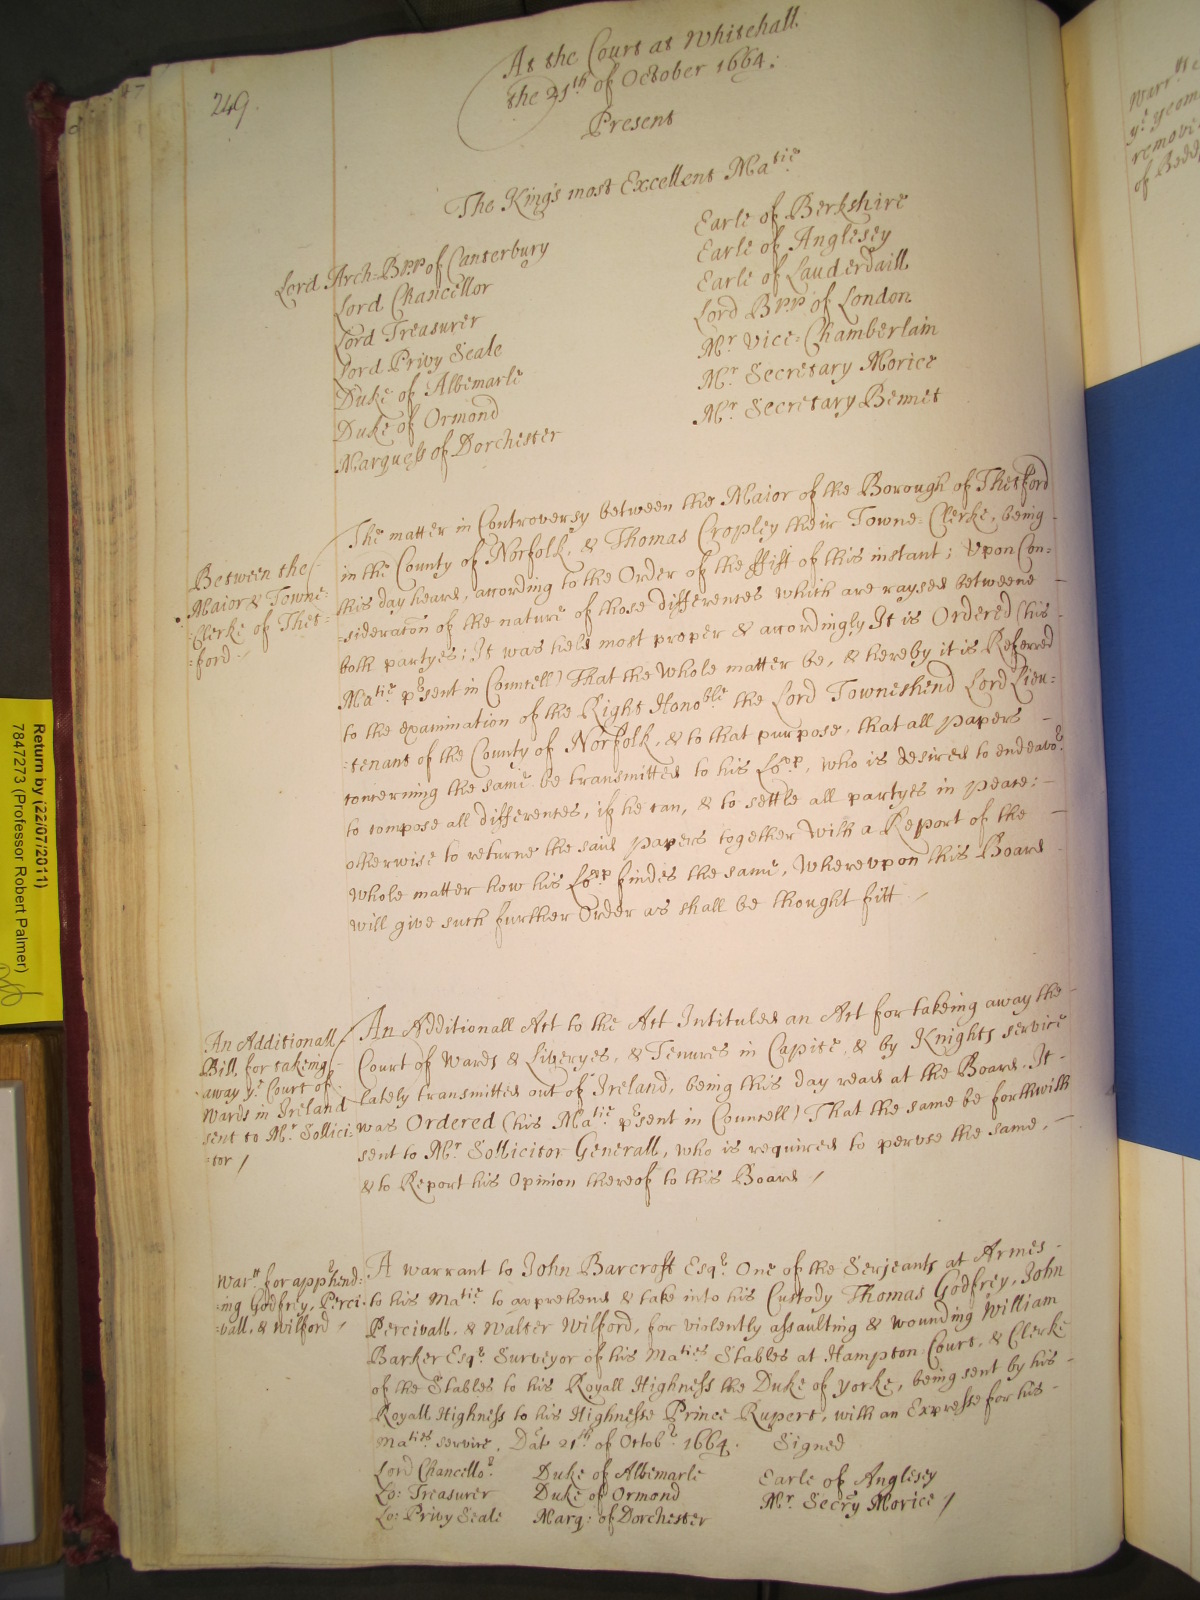 249.
At the Court at Whitehall
the 21th of October 1664.
Present
The Kings most Excellent Matie
Lord Arch=Bpp of Canterbury
Lord Chancellor
Lord Treasurer
Lord Privy Seale
Duke of Albemarle
Duke of Ormond
Marquess of Dorchester
Earle of Berkshire
Earle of Anglesey
Earle of Lauderdaill
Lord Bpp of London
Mr Vice=Chamberlain
Mr Secretary Morice
Mr Secretary Bennet
Between the
Maior & Towne=
=Clerke of Thet=
=ford
The matter in Controversy between the Maior of the Borough of Thetford
in the County of Norfolk, & Thomas Cropley their Towne=Clerke, being
this day heard, according to the Order of the ffift of this instant; Upon Con=
=sideraton of the nature of those differences which are raysed betweene
both partyes; It was held most proper & accordingly It is Ordered (his
Matie psent in Councell) That the whole matter be, & hereby it is Referred
to the examination of the Right Honoble the Lord Towneshend Lord Lieu=
=tenant of the County of Norfolk, & to that purpose, that all papers
concerning the same be transmitted to his Lopp, who is desired to endeavor
to compose all differences, if he can, & to settle all partyes in peace;
otherwise to returne the said papers together with a Report of the
whole matter how his Lopp findes the same, Whereupon this Board
will give such further Order as shall be thought fitt /
An Additionall
Bill, for takeing
away ye Court of
Wards in Ireland
sent to Mr Sollici=
=tor /
An Additionall Act to the Act Intituled an Act for takeing away the
Court of Wards & Liveryes, & Tenures in Capite, & by Knights service
lately transmitted out of Ireland, being this day read at the Board. It
was Ordered (his Matie psent in Councell) That the same be forthwith
sent to Mr Sollicitor Generall, who is required to peruse the same,
& to Report his Opinion thereof to this Board /
Warrt for apphend=
=ing Godfrey, Perci=
=vall, & Wilford /
A warrant to John Barcroft Esqr One of the Serjeants at Armes
to his Matie to apprehend & take into his Custody Thomas Godfrey, John
Percivall, & Walter Wilford, for violently assaulting & wounding William
Barker Esqr Surveyor of his Maties Stables at Hampton=Court, & Clerke
of the Stables to his Royall Highness the Duke of yorke, being sent by his
Royall Highness to his Highnesse Prince Rupert, with an Expresse for his
Maties service. Dat 21th of Octobr 1664. Signed
Lord Chancellor
Lo: Treasurer
Lo: Privy Seale
Duke of Albemarle
Duke of Ormond
Marq: of Dorchester
Earle of Anglesey
Mr Secry Morice /
Warrtt
ye yeom
remov
of Bedd
Return by (22/07/2011)
7847273 (Professor Robert Palmer)